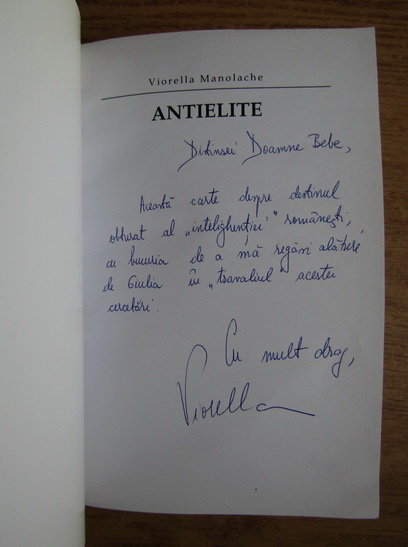 Viorella Manolache
ANTIELITE
Distinsei Doamne Bebe,
Această carte despre destinul
obturat al „intelighenției" românești,
cu bucuria de a mă regăsi alături
de Giulia în „travaliul" acestei
cercetări.
Cu mult drag,
Viorella